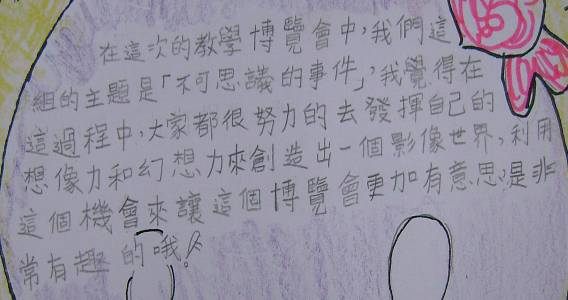 在這次的教學博覽會中，我們這
組的主題是「不可思議的事件」，我覺得在
這過程中，大家都很努力的去發揮自己的
想像力和幻想力來創造出一個影像世界，利用
這個機會來讓這個博覽會更加有意思，是非
常有趣的哦！